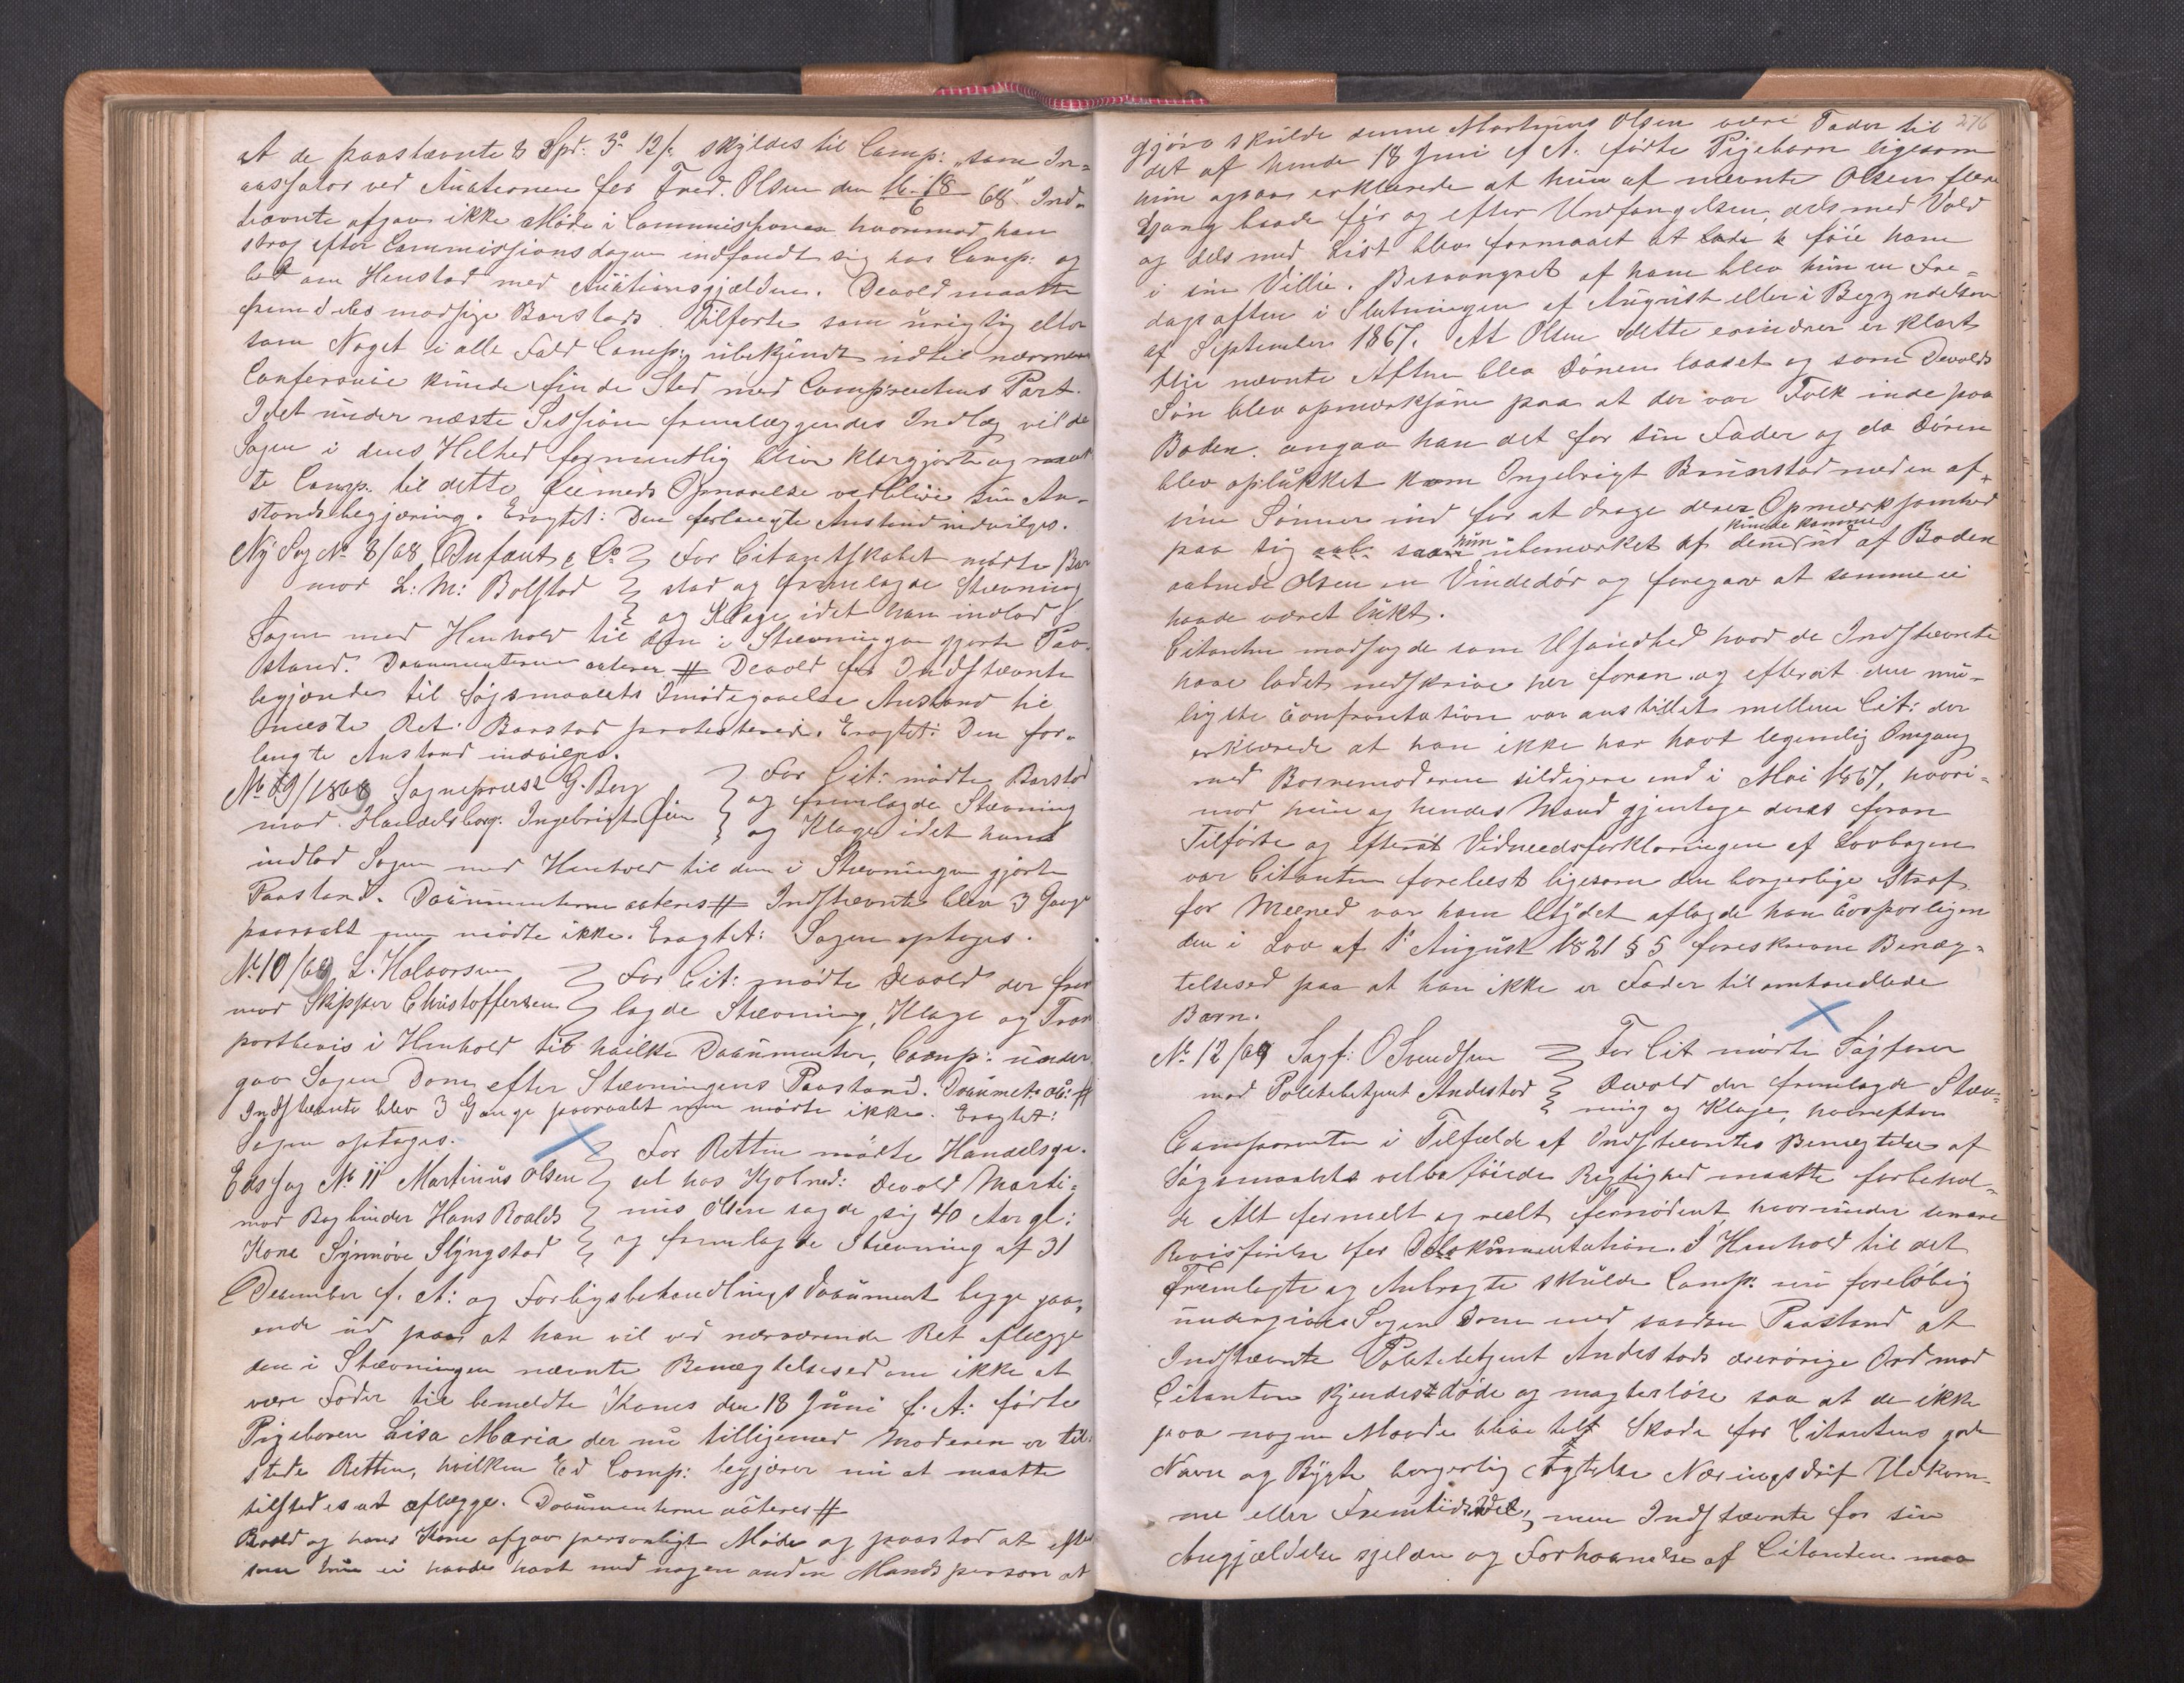 at de paastævnte 8 Spd. 3 12/ skyldes til Comp: „som In-
cassator ved Auctionen for Fred. Olsen den 16-18/6 68" Ind-
stævnte afgav ikke Møde i Commissionen hvorimod han
strax efter Commissionsdagen indfandt sig hos Comp: og
bad om Henstad med Auctionsgjælden. Devold maatte
fremdeles modsige Barstads Tilførte som urigtig eller
som Noget i alle Fald Comp: ubekjendt indtil nærmere
Conference kunde finde Sted med Comprentens Part.
I det under næste Session fremlæggendes Indlæg vil da
Sagen i dens Helhed formentlig blive klargjort og maat
te Comp. til dette Øiemeds Opnaaelse vedblive sin An-
standsbegjæring. Eragtet: Den forlangte Anstand indvilges.
Ny Sag No 8/68 Dufaut & Co For Citantskabet mødte Bar
mod L: M: Bolstad stad og fremlagde Stævning
og Klage idet han indlod
Sagen med Henhold til den i Stævningen gjorte Paa-
stand. Documenterne acteres # Devold for Indstævnte
begjærede til Søgsmaalets Imødegaaelse Anstand til
næste Ret. Barstad protesterede. Eragtet: Den for-
langte Anstand indvilges.
No 9/1868 Sognepræst G. Berg For Cit: mødte Barstad
mod Handelsborg. Ingebrigt og fremlagde Stævning
og Klage idet han
indlod Sagen med Henhold til den i Stævningen gjorte
Paastand. Documenterne acteres # Indstævnte blev 3 Gange
paaraabt men mødte ikke. Eragtet: Sagen optages.
No 10/69 L. Halvorsen For Cit: mødte Devold der frem
mod Skipper Christoffersen lagde Stævning, Klage og Trans
portbevis i Henhold til hvilke Documenter, Comp: under
gav Sagen Dom efter Stævningens Paastand. Documet: act: #
Indstævnte blev 3 Gange paaraabt men mødte ikke. Eragtet:
Sagen optages.
Edssag No 11 Martinus Olsen For Retten mødte Handelsge-
mod Bogbinder Hans Roalds sel hos Kjøbmd: Devold Marti-
Kone Synnøve Slyngstad nus Olsen sagde sig 40 Aar gl:
og fremlagde Stævning af 31
December f. A: og Forligsbehandlings Document begge gaa-
ende ud paa at han vil ved nærværende Ret aflægge
den i Stævningen nævnte Benægtelsesed om ikke at
være Fader til bemeldte Kones den 18 Juni f. A: fødte
Pigebarn Lisa Maria der nu tilligemed Moderen er til-
stede Retten, hvilken Ed Comp: begjærer nu at maatte
tilstedes at aflægge. Documenterne acteres #
Roald og hans Kone afgav personligt Møde og paastod at efter
som hun ei havde havt med nogen anden Mandsperson at
276
gjøre skulde denne Martinus Olsen være Fader til
det af hende 18 Juni f A. fødte Pigebarn ligesom
hun ogsaa erklærede at hun af nævnte Olsen flere
Gang baade før og efter Undfangelsen, dels med Vold
og dels med List blev formaaet at lade te føie ham
i sin Villie. Besvangret af ham blev hun en Fre-
dagsaften i Slutningen af August eller i Begyndelsen
af September 1867. At Olsen dette erindrer er klart
thi nævnte Aften blev Døren laaset og som Devolds
Søn blev opmærksom paa at der var Folk inde paa
Boden, angav han det for sin Fader og da Døren
blev oplukket kom Ingebrigt Brunstad med en af
sine Sønner ind for at drage deres Opmærksomhed
paa sig saa hun ubemærket af dem kunde komme ud af Boden
aabnede Olsen en Vindedør og foregav at samme ei
havde været lukt.
Citanten modsagde som Usandhed hvad de Indstævnte
have ladet nedskrive her foran. og efterat den mu-
ligste Confrontation var anstillet mellem Cit: der
erklærede at han ikke har havt legemlig Omgang
med Barnemoderen sildigere end i Mai 1867, hvori-
mod hun og hendes Mand gjentoge deres foran
Tilførte og efterat Vidneedsforklaringen af Lovbogen
var Citanten forelæst ligesom den borgerlige Straf
for Meened var ham betydet aflagde han Corporligen
den i Lov af 1 August 1821 § 5 foreskrevne Benæg-
telsesed paa at han ikke er Fader til omhandlede
Barn.
No 12/69 Sagf: O Svendsen For Cit mødte Sagfører
mod Politibetjent Andestad Devold der fremlagde Stæv-
ning og Klage, hvorefter
Comparenten i Tilfælde af Indstævntes Benægtelse af
Søgsmaalets velbeføiede Rigtighed maatte forbehol-
de Alt formelt og reelt fornødent, hvorunder senere
Bevisførelse før Dokumentation. I Henhold til det
Fremlagte og Anbragte skulde Comp: nu foreløbig
undergive Sagen Dom med saadan Paastand at
Indstævnte Politibetjent Andestads ærerørige Ord mod
Citanten kjendes døde og magtesløse saa at de ikke
paa nogen Maade blive til Skade for Citantens gode
Navn og Rygte borgerlig Agtelse Næringsdrift Udkom-
me eller Fremtidsheld, men Indstævnte for sin
Angjældelse og Forhaanelse af Citanten maa